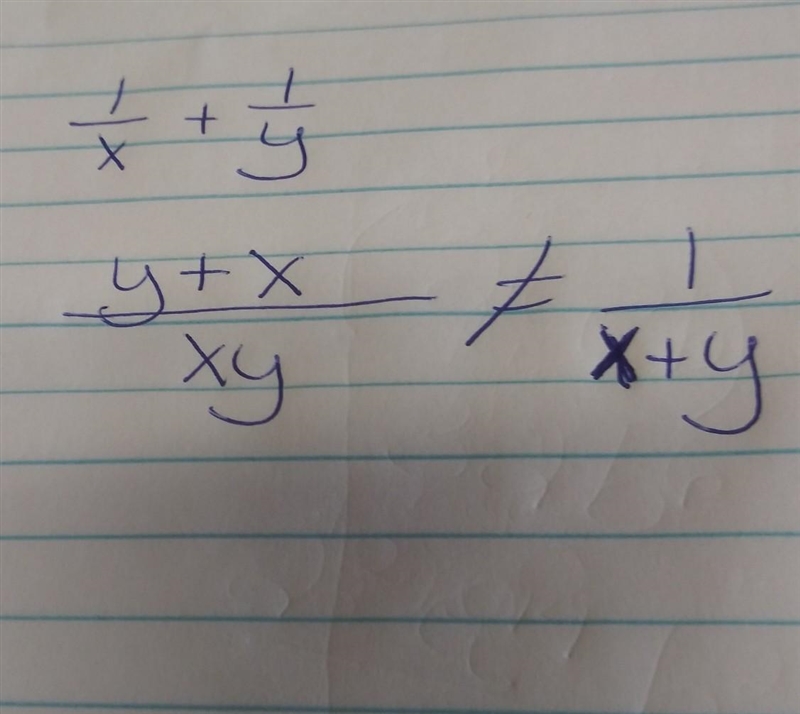 1/x + 1/y
(y + x)/(xy) ≠ 1/(x+y)